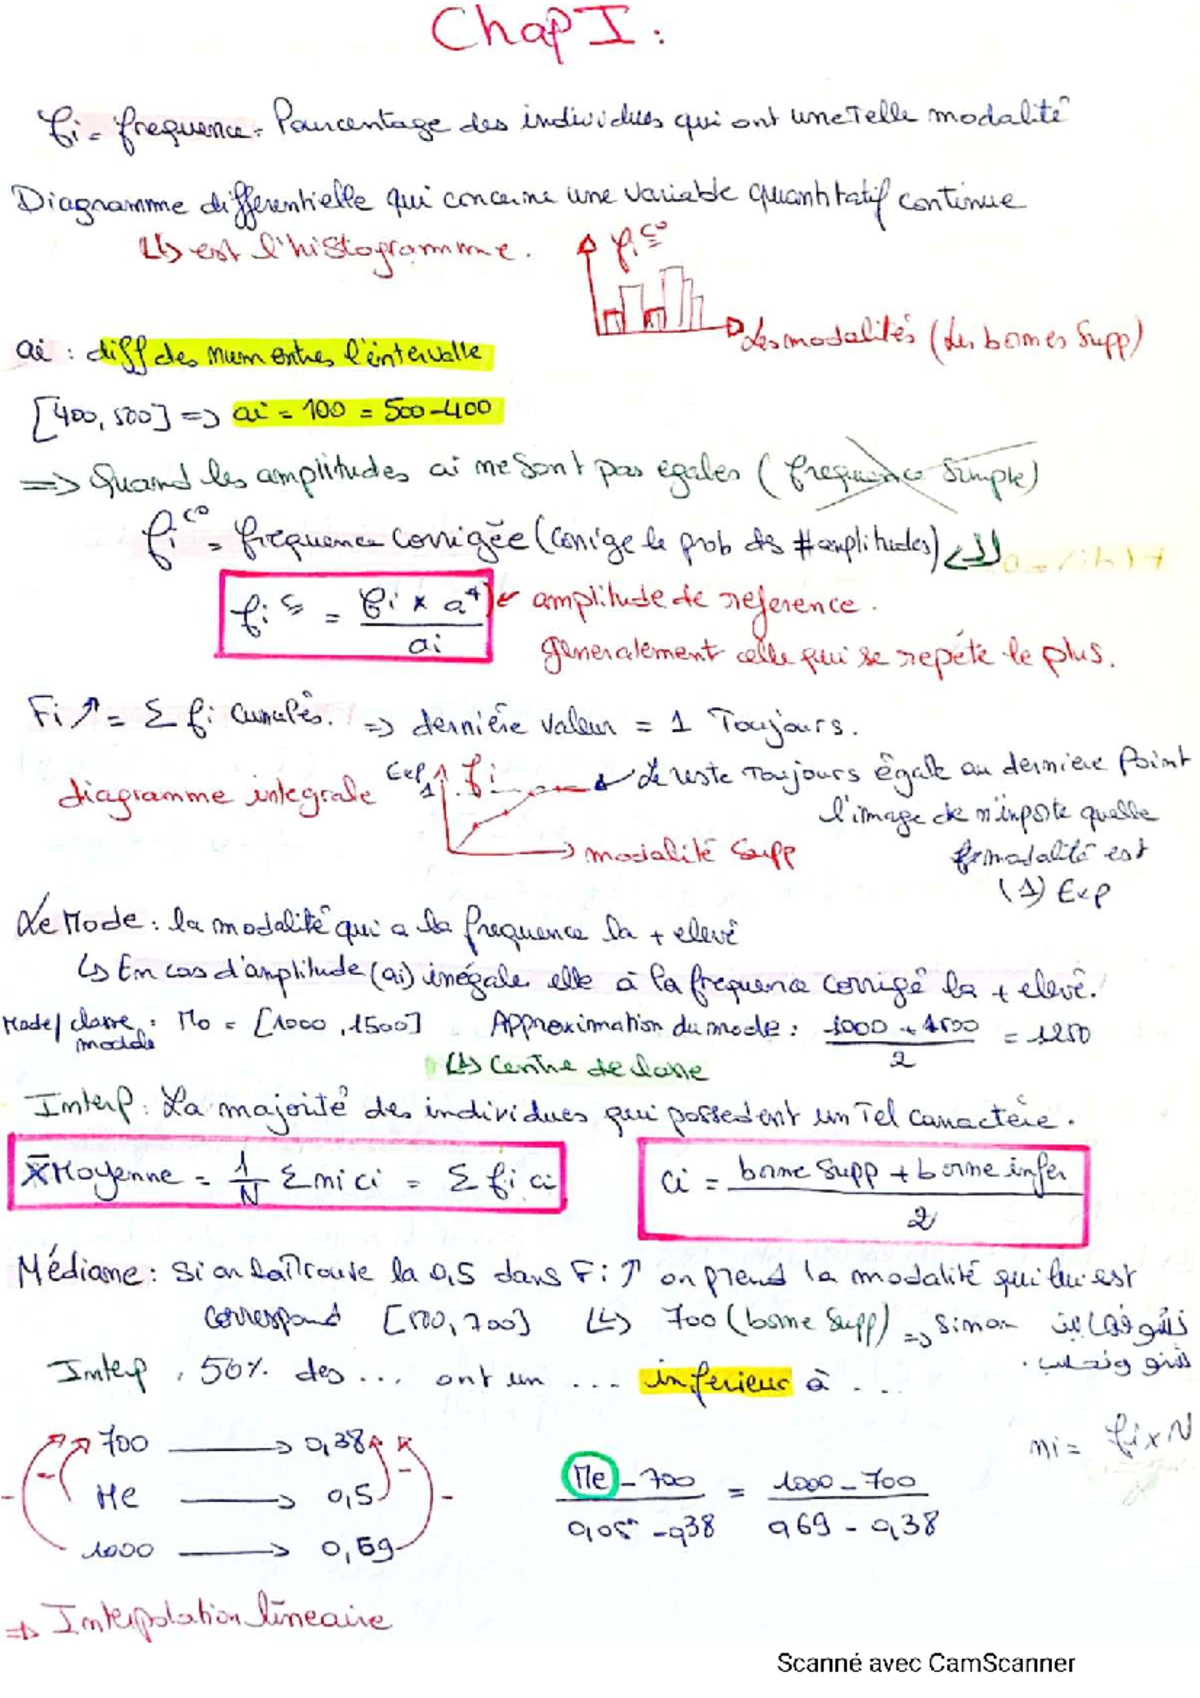 Chap I :
fi = frequence = Pourcentage des individus qui ont une Telle modalité
Diagramme differentielle qui concerne une variable quantitatif continue
↳ est l'histogramme.
fi co
Les modalités (des bornes Supp)
ai : diff des num entres l'intervalle
[400, 500] => ai = 100 = 500-400
=> Quand les amplitudes ai ne sont pas égales (frequence Simple)
fi co = frequence corrigée (corrige le prob des # amplitudes)
fi co = fi x a* / ai
amplitude de reference.
generalement celle qui se repéte le plus.
Fi ↗ = Σ fi cumulés. => derniére valeur = 1 Toujours.
diagramme integrale
Exp 1 fi
Le reste Toujours égale au derniere Point
l'image de n'inporte quelle
modalité est
(1) Exp
modalité Supp
Le Mode : la modalité qui a la frequence la + elevé
↳ En cas d'amplitude (ai) inégale elle à la frequence corrigé la + elevé.
Mode / classe modale : Mo = [1000, 1500] Approximation du mode : 1000 + 1500 / 2 = 1250
↳ Centre de classe
Interp : La majorité des individues qui possedent un Tel caractére.
X̄ Moyenne = 1/N Σ ni ci = Σ fi ci
ci = borne Supp + borne infer / 2
Médiane : Si on la Trouve la 0,5 dans Fi ↗ on prend la modalité qui lui est
correspond [500, 700] ↳ 700 (borne Supp) => Sinon
Interp : 50% des ... ont un ... inferieur à ...
ni = fi x N
700 → 0,38
Me → 0,5
1000 → 0,69
Me - 700 / 0,05 - 0,38 = 1000 - 700 / 0,69 - 0,38
=> Interpolation lineaire
Scanné avec CamScanner